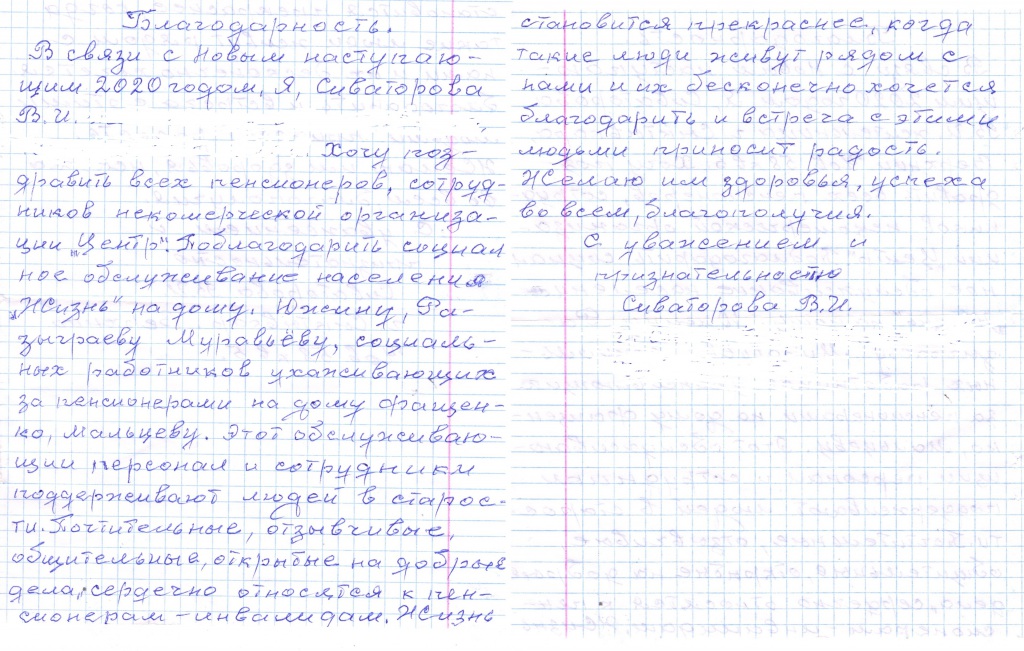 Благодарность.
В связи с Новым наступаю-
щим 2020 годом, Я, Сиваторова
В.И.
Хочу поз-
дравить всех пенсионеров, сотруд-
ников некомерческой организа-
ции „Центр". Поблагодарить социал
ное обслуживание населения
„Жизнь" на дому. Южину, Ра-
зыграеву Муравьёву, социаль-
ных работников ухаживающих
за пенсионерами на дому Фращен-
ко, Мальцеву. Этот обслуживаю-
щии персонал и сотрудники
поддерживают людей в старос-
ти. Почтительные, отзывчивые,
общительные, открытые на добрые
дела, сердечно относятся к пен-
сионерам-инвалидам. Жизнь
становится прекраснее, когда
такие люди живут рядом с
нами и их бесконечно хочется
благодарить и встреча с этими
людьми приносит радость.
Желаю им здоровья, успеха
во всем, благополучия.
С уважением и
признательностю
Сиваторова В.И.